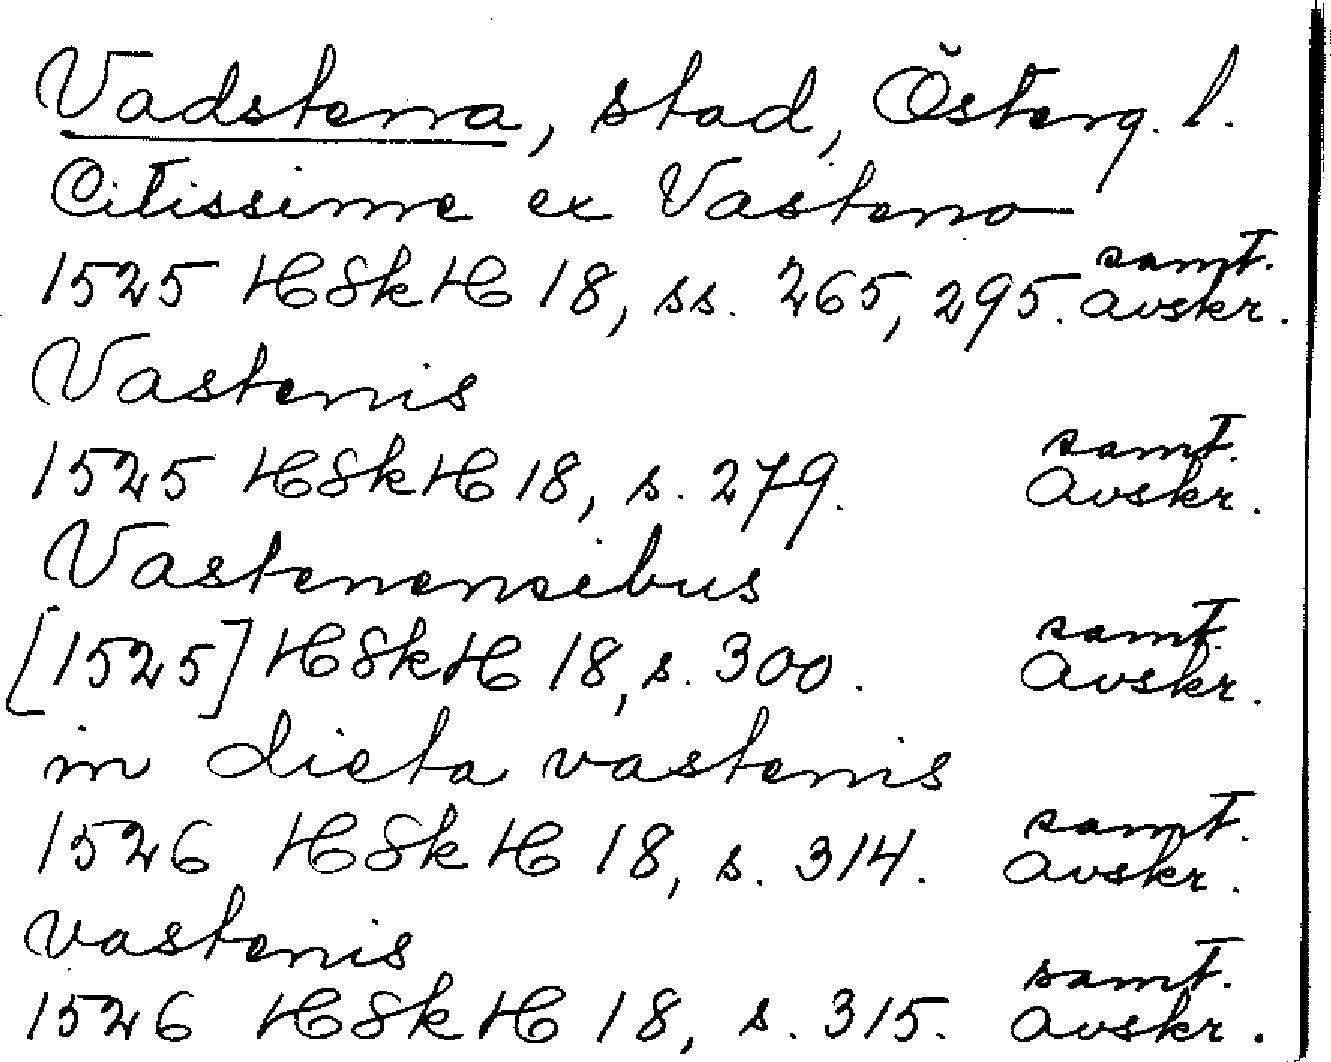 Vadstena, stad, Österg. l.
Citissime ex Vasteno
1525 HSkH 18, ss. 265, 295. samt. avskr.
Vastenis
1525 HSkH 18, s. 279. samt. avskr.
Vastenensibus
[1525] HSkH 18, s. 300. samt. avskr.
in dieta vastenis
1526 HSkH 18, s. 314. samt. avskr.
vastenis
1526 HSkH 18, s. 315. samt. avskr.